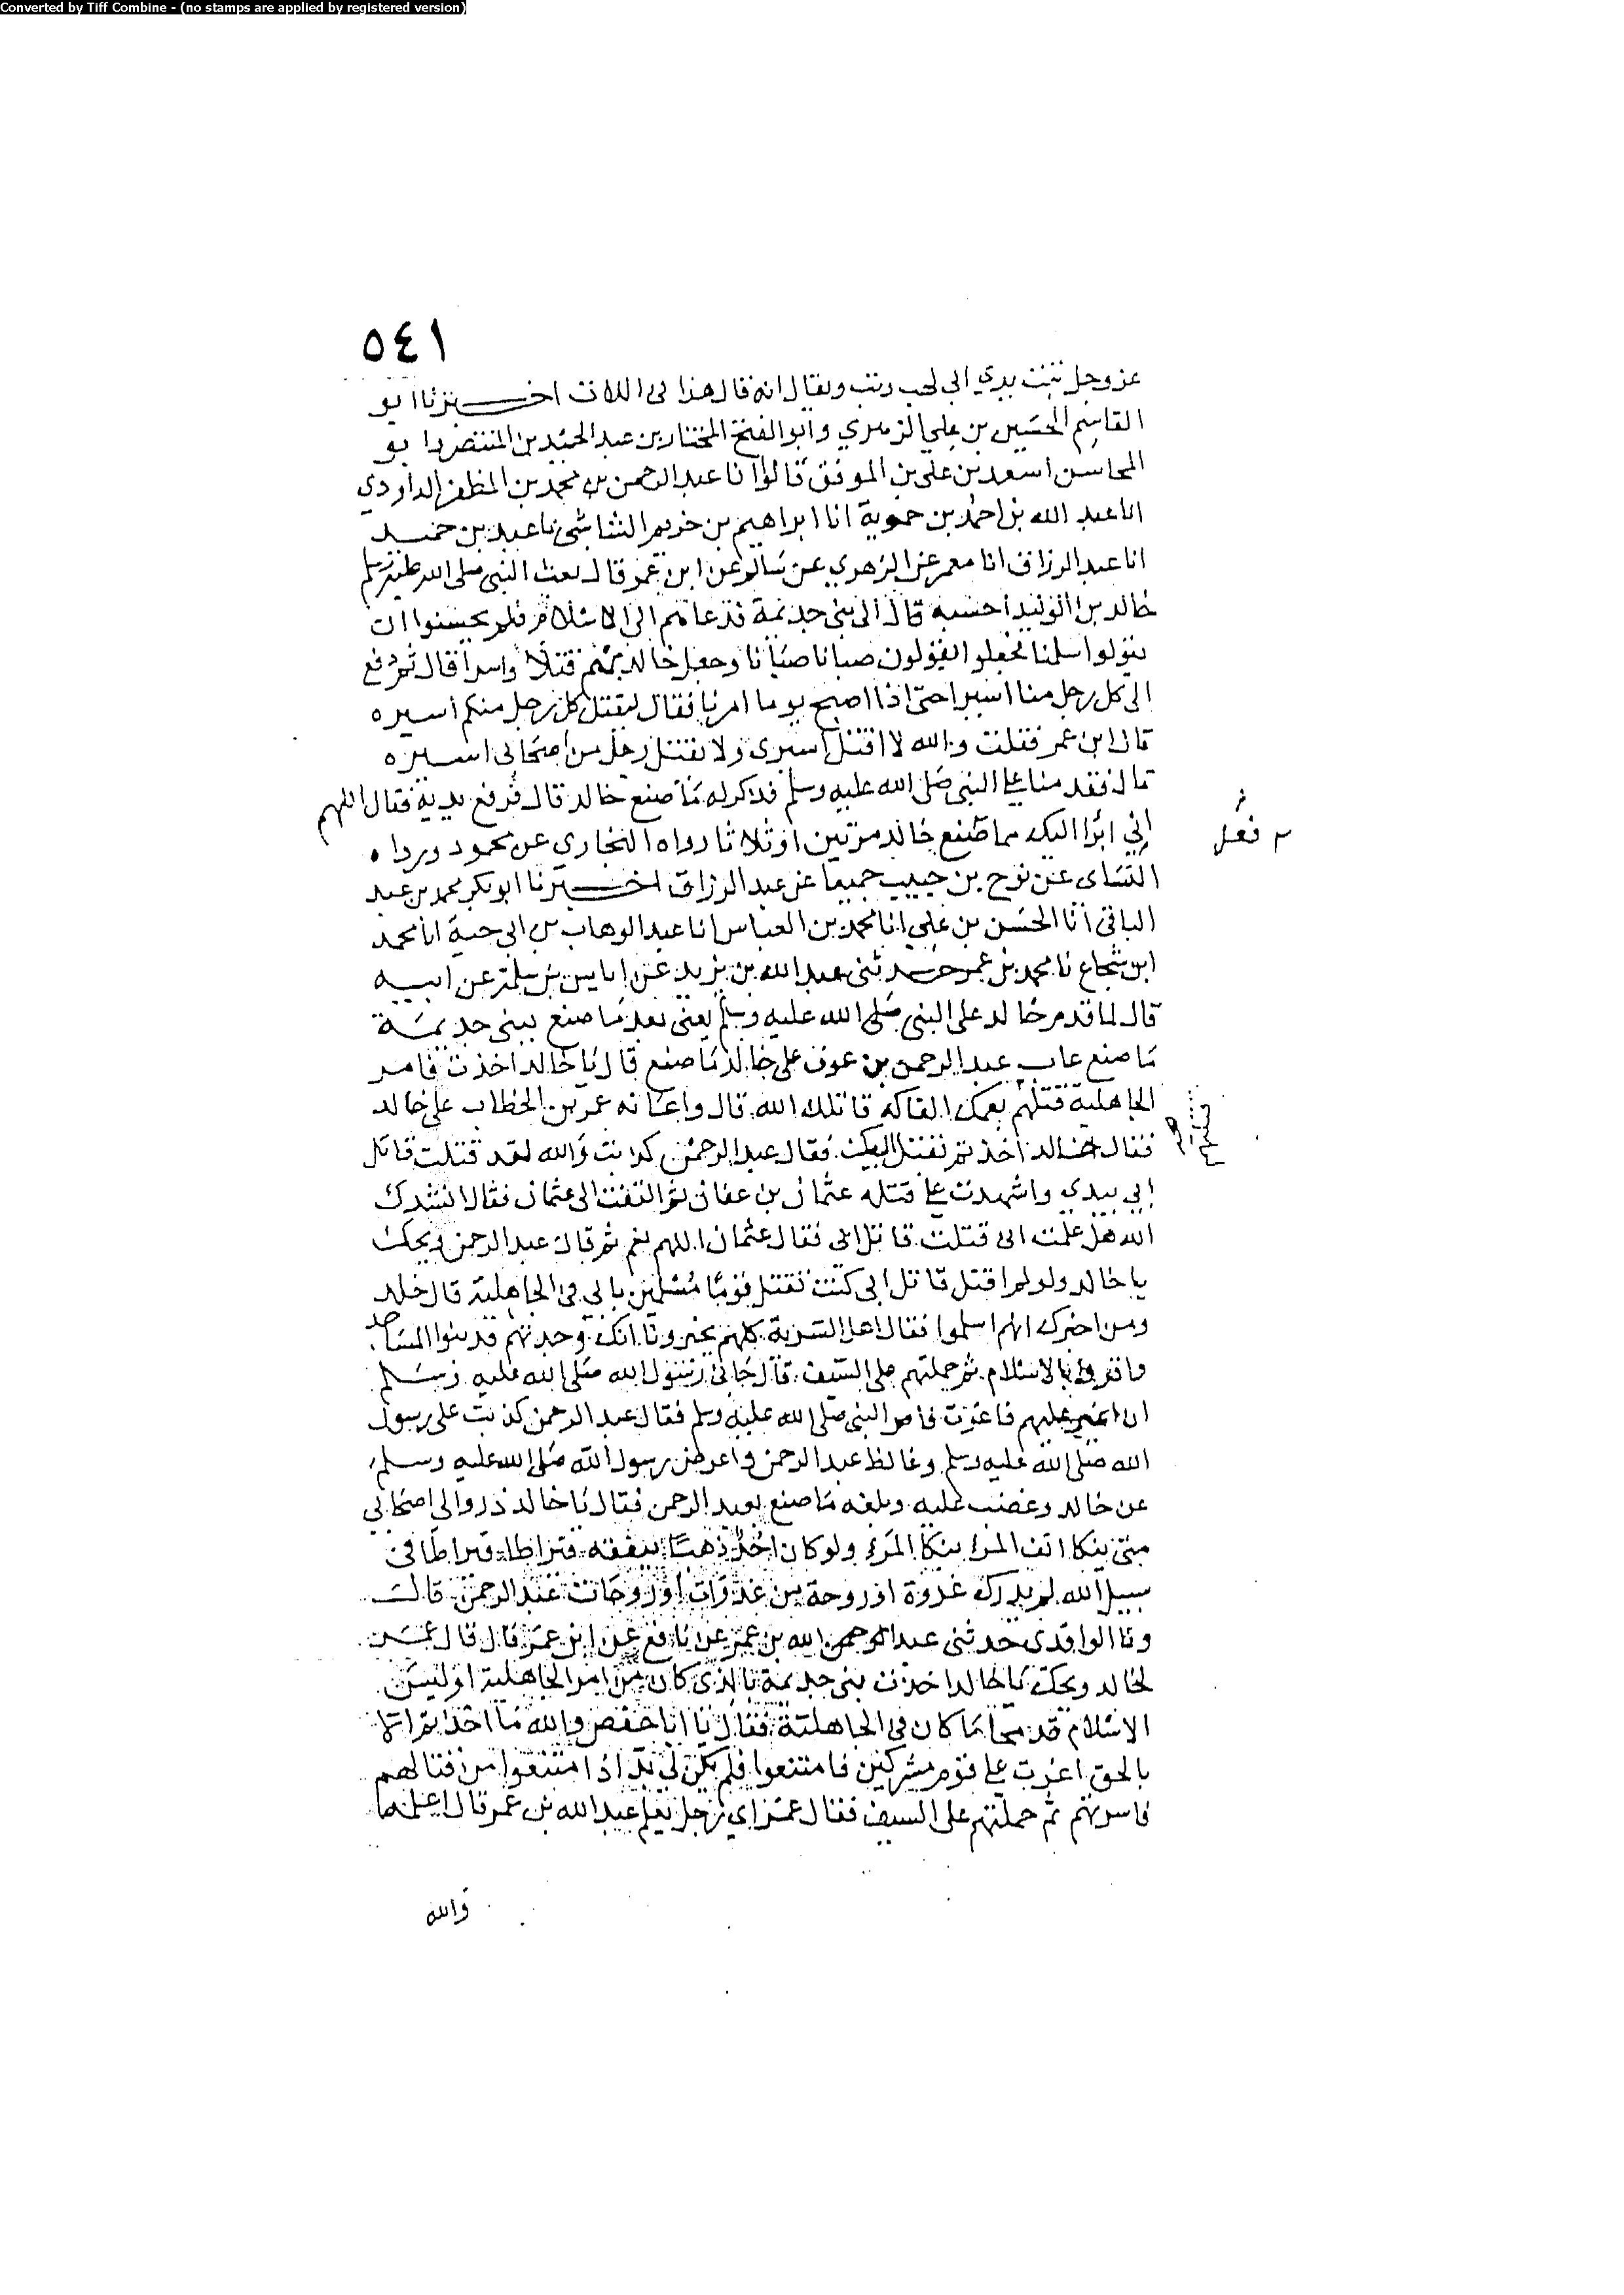 Converted by Tiff Combine - (no stamps are applied by registered version)
٥٤١
عز وجل تبت يدي ابي لهب وتب ويقال انه قال هذا في اللات اخبرنا ابو
القاسم الحسين بن علي الزهري وابو الفتح المختار بن عبد الحميد بن المنتصر وابو
المحاسن اسعد بن علي بن الموفق قالوا انا عبد الرحمن بن محمد بن المظفر الداودي
انا عبد الله بن احمد بن حموية انا ابراهيم بن خريم الشاشي نا عبد بن حميد
انا عبد الرزاق انا معمر عن الزهري عن سالم عن ابن عمر قال بعث النبي صلى الله عليه وسلم
خالد بن الوليد احسبه قال الى بني جذيمة فدعاهم الى الاسلام فلم يحسنوا ان
يقولوا اسلمنا فجعلوا يقولون صبانا صبانا وجعل خالد بهم قتلا واسرا قال ثم دفع
الى كل رجل منا اسيرا حتى اذا اصبح يوما امرنا فقال ليقتل كل رجل منكم اسيره
قال ابن عمر فقلت والله لا اقتل اسيري ولا يقتل رجل من اصحابي اسيره
قال فقدمنا على النبي صلى الله عليه وسلم فذكر له ما صنع خالد قال فرفع يديه فقال اللهم
اني ابرا اليك مما صنع خالد مرتين او ثلاثا رواه البخاري عن محمود ورواه
فعل
النساي عن نوح بن حبيب جميعا عن عبد الرزاق اخبرنا ابو بكر محمد بن عبد
الباقي انا الحسن بن علي انا محمد بن العباس انا عبد الوهاب بن ابي حية انا محمد
ابن شجاع نا محمد بن عمر حدثني عبد الله بن يزيد عن اياس بن سلمة عن ابيه
قال لما قدم خالد على النبي صلى الله عليه وسلم يعني بعد ما صنع ببني جذيمة
ما صنع عاب عبد الرحمن بن عوف على خالد ما صنع قال يا خالد اخذت بامر
الجاهلية قتلهم بعمك الفاكه قاتلك الله قال واعانه عمر بن الخطاب على خالد
فقال خالد اخذتهم بقتل ابيك فقال عبد الرحمن كذبت والله لقد قتلت قاتل
ابي بيدي واشهدت على قتله عثمان بن عفان ثم التفت الى عثمان فقال انشدك
الله هل علمت اني قتلت قاتل ابي فقال عثمان اللهم نعم ثم قال عبد الرحمن ويحك
يا خالد ولو لم اقتل قاتل ابي كنت تقتل قوما مسلمين بابي في الجاهلية قال خالد
ومن اخبرك انهم اسلموا فقال اهل السرية كلهم يخبرونا انك وجدتهم قد بنوا المساجد
واقروا بالاسلام ثم حملتهم على السيف قال جاني رسول الله صلى الله عليه وسلم
ان اغير عليهم فاغرت بامر النبي صلى الله عليه وسلم فقال عبد الرحمن كذبت على رسول
الله صلى الله عليه وسلم وغالظ عبد الرحمن واعرض رسول الله صلى الله عليه وسلم
عن خالد وغضب عليه وبلغه ما صنع بعبد الرحمن فقال يا خالد ذروا لي اصحابي
متى ينكا انف المرء ينكا المرء ولو كان احد ذهبا ينفقه قيراطا قيراطا في
سبيل الله لم يدرك غدوة او روحة من غدوات او روحات عبد الرحمن قالت
ونا الواقدي حدثني عبد الله بن عمر عن نافع عن ابن عمر قال قال عمر
لخالد ويحك يا خالد اخذت بني جذيمة بالذي كان من امر الجاهلية اوليس
الاسلام قد محا ما كان في الجاهلية فقال يا ابا حفص والله ما اخذتهم الا
بالحق اغرت على قوم مشركين فامتنعوا فلم يكن لي بد اذ امتنعوا من قتالهم
فاسرتهم ثم حملتهم على السيف فقال عمر اي رجل تعلم عبد الله بن عمر قال اعلمه
والله